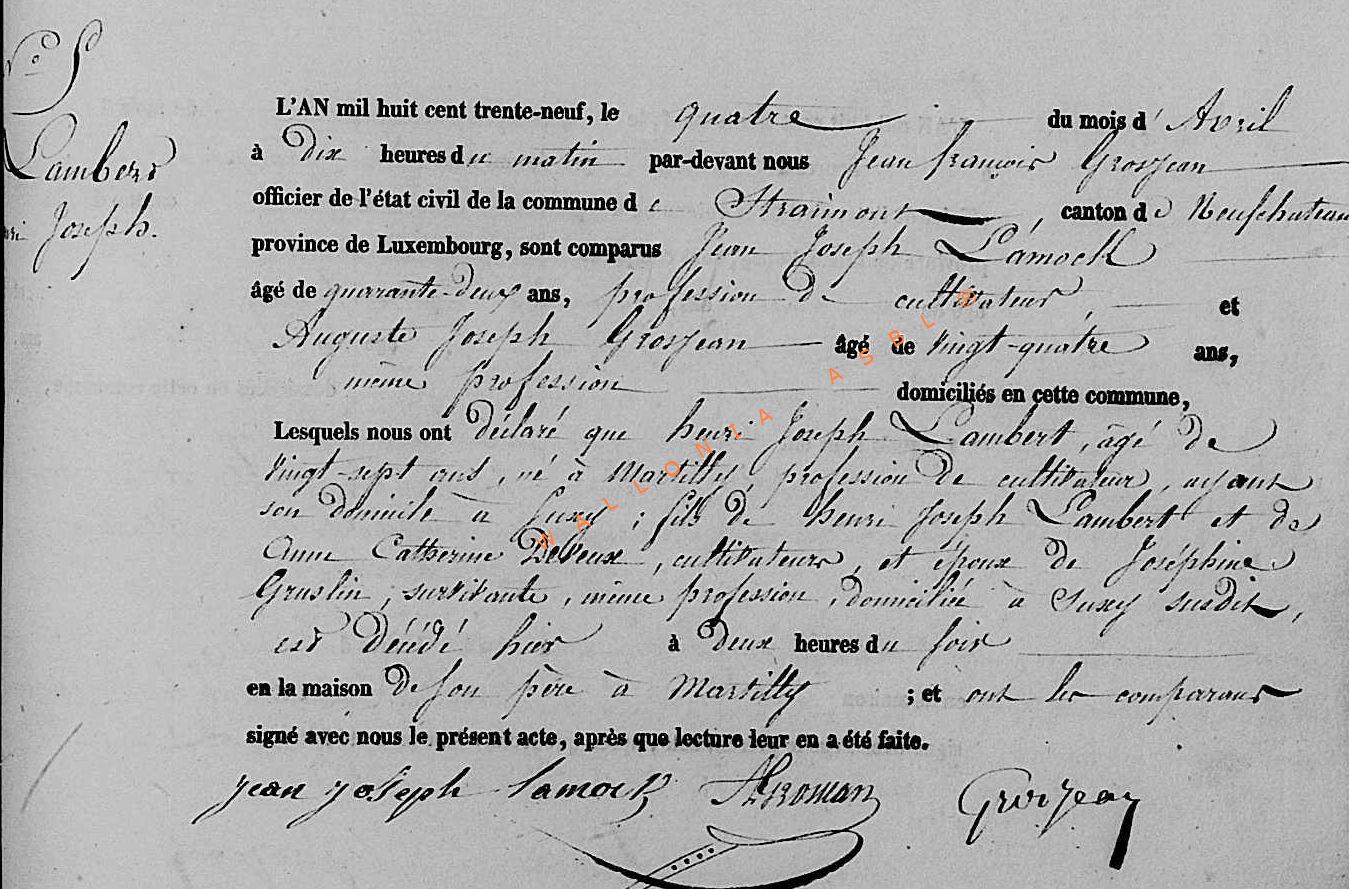 N° 5
Lambert
Joseph.
L'AN mil huit cent trente-neuf, le quatre du mois d'Avril
à Dix heures du matin par-devant nous Jean françois Grosjean
officier de l'état civil de la commune de Straimont, canton de Neufchateau
province de Luxembourg, sont comparus Jean Joseph Lamock
âgé de quarante-deux ans, profession de cultivateur, et
Auguste Joseph Grosjean âgé de vingt-quatre ans,
même profession domiciliés en cette commune,
Lesquels nous ont déclaré que henri Joseph Lambert, âgé de
vingt-sept ans, né à Martilly, profession de cultivateur, ayant
son domicile à Suxy; fils de henri Joseph Lambert et de
Anne Catherine Deveux, cultivateurs, et époux de Joséphine
Gruslin, survivante, même profession, domiciliée à Suxy susdit,
est décédé hier à deux heures du soir
en la maison de son père à Martilly ; et ont les comparans
signé avec nous le présent acte, après que lecture leur en a été faite.
jean joseph lamock Grosjean
WALLONIA ASBL ©